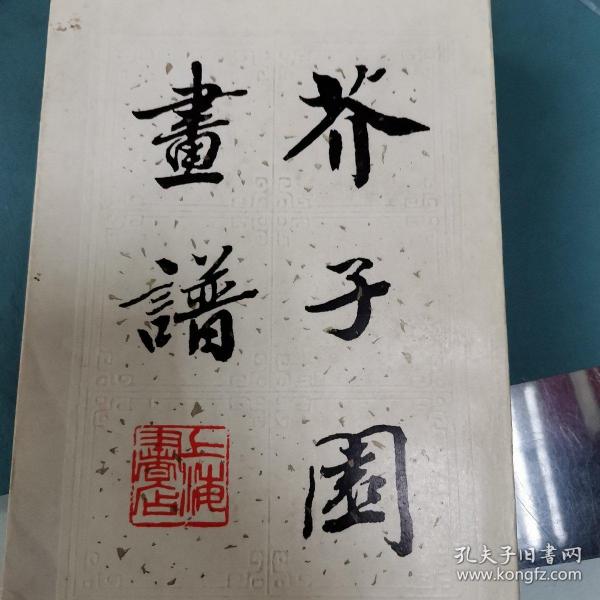 芥子園
畫譜
上海
書店
孔夫子旧书网
www.kongfz.com